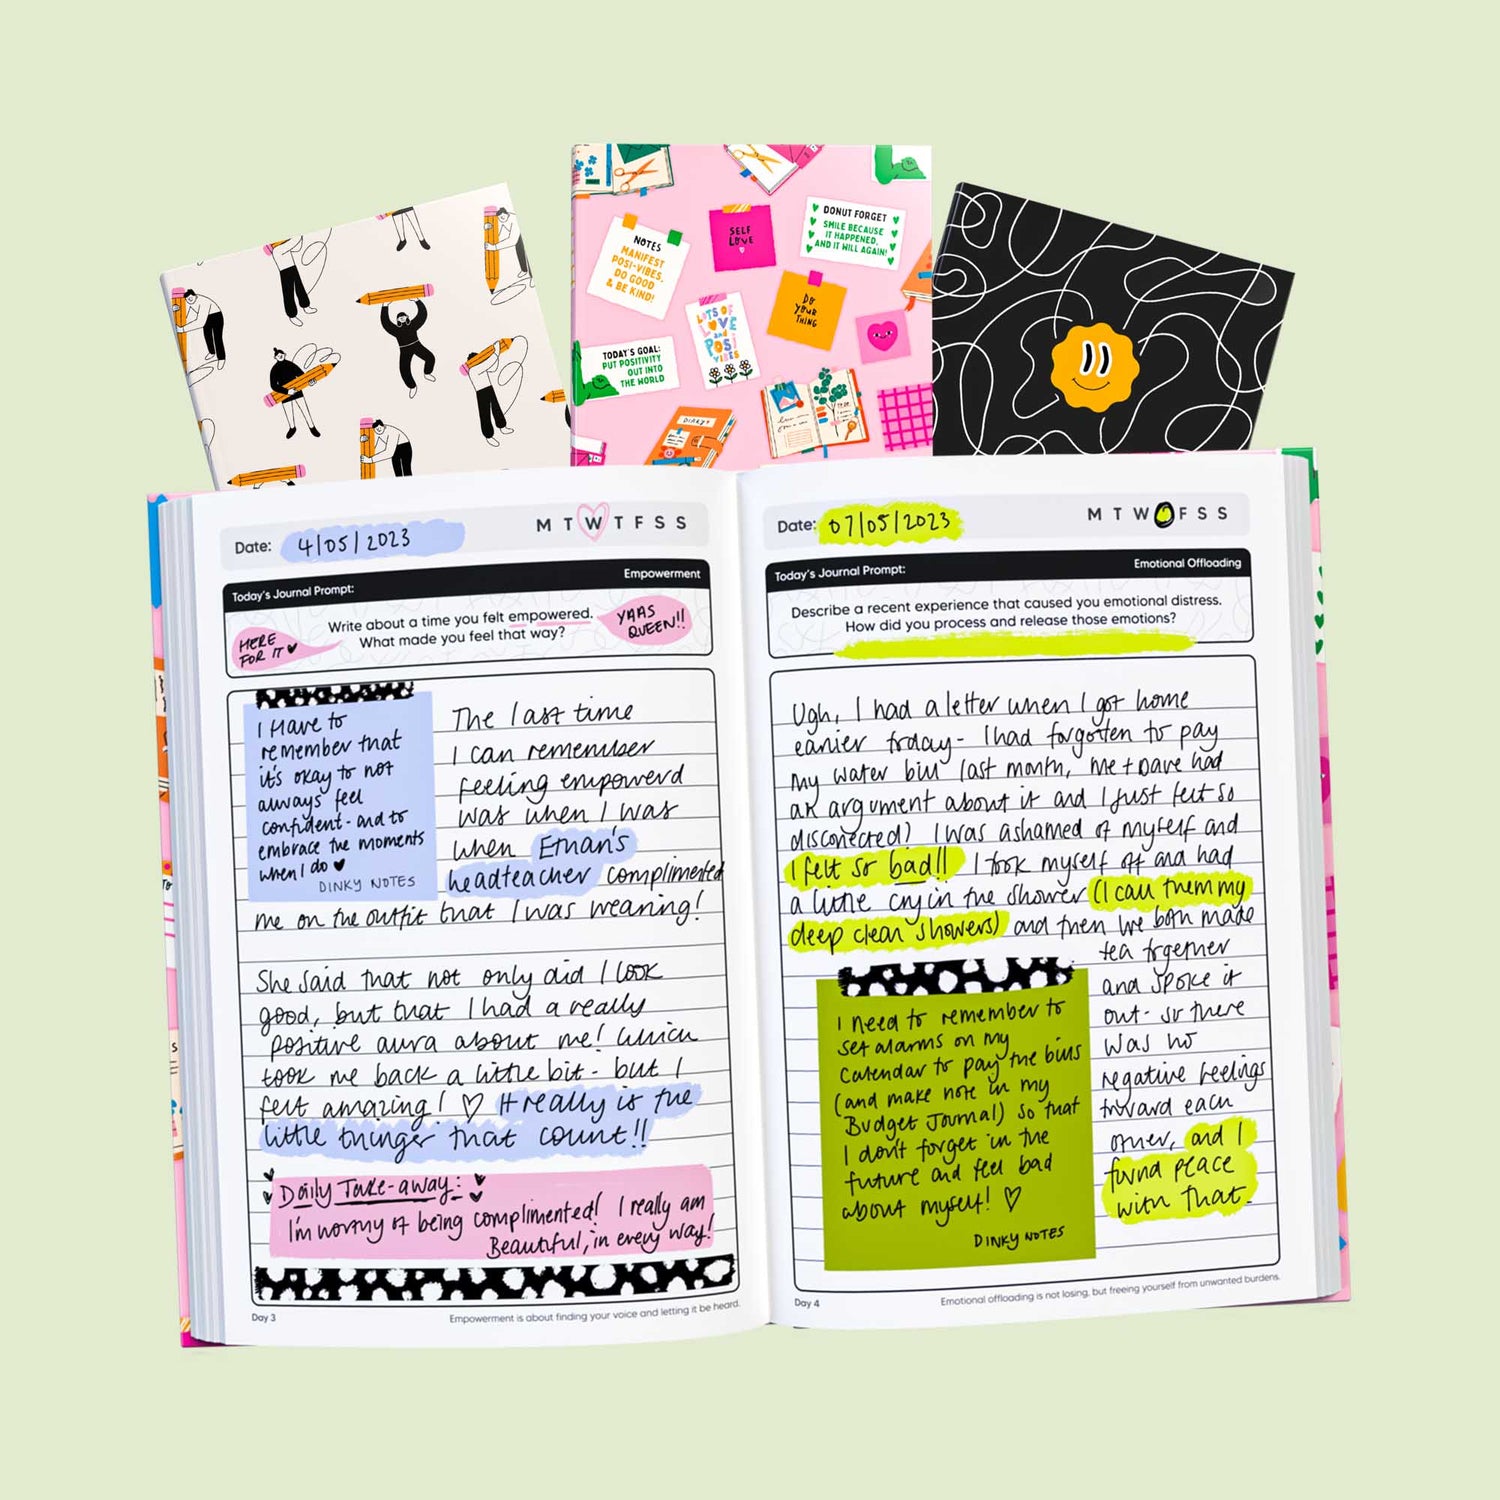 NOTES
MANIFEST
POSI-VIBES,
DO GOOD
& BE KIND!
SELF
LOVE
DONUT FORGET
SMILE BECAUSE
IT HAPPENED,
AND IT WILL AGAIN!
LOTS OF
LOVE
and
POSI
VIBES
DO
YOUR
THING
TODAY'S GOAL:
PUT POSITIVITY
OUT INTO
THE WORLD
DIARY
Date: 4/05/2023
M T W T F S S
Today's Journal Prompt: Empowerment
Write about a time you felt empowered.
What made you feel that way?
HERE
FOR IT
YAAS
QUEEN!!
I Have to
remember that
it's okay to not
always feel
confident - and to
embrace the moments
when I do ♥
DINKY NOTES
The last time
I can remember
feeling empowerd
was when I was
when Ethan's
headteacher complimented
me on the outfit that I was wearing!
She said that not only did I look
good, but that I had a really
positive aura about me! Which
took me back a little bit - but I
felt amazing! ♡ It really is the
little thinger that count!!
Daily Take-away:
I'm worthy of being complimented! I really am
Beautiful, in every way!
Day 3
Empowerment is about finding your voice and letting it be heard.
Date: 07/05/2023
M T W T F S S
Today's Journal Prompt: Emotional Offloading
Describe a recent experience that caused you emotional distress.
How did you process and release those emotions?
Ugh, I had a letter when I got home
earlier today - I had forgotten to pay
my water bill last month, me + Dave had
an argument about it and I just felt so
disconected) I was ashamed of myself and
I felt so bad!! I took myself off and had
a little cry in the shower (I call them my
deep clean showers) and then we both made
tea together
and spoke it
out - so there
was no
negative feelings
toward each
other, and I
found peace
with that.
I need to remember to
set alarms on my
Calendar to pay the bills
(and make note in my
Budget Journal) so that
I don't forget in the
future and feel bad
about myself! ♡
DINKY NOTES
Day 4
Emotional offloading is not losing, but freeing yourself from unwanted burdens.